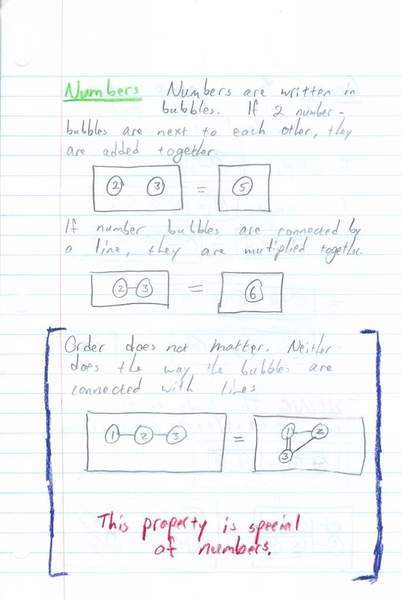 Numbers Numbers are written in
bubbles. If 2 number-
bubbles are next to each other, they
are added together.
2 3 = 5
If number bubbles are connected by
a line, they are multiplied together.
2 3 = 6
Order does not matter. Neither
does the way the bubbles are
connected with lines
1 2 3 = 1 2
3
This property is special
of numbers.